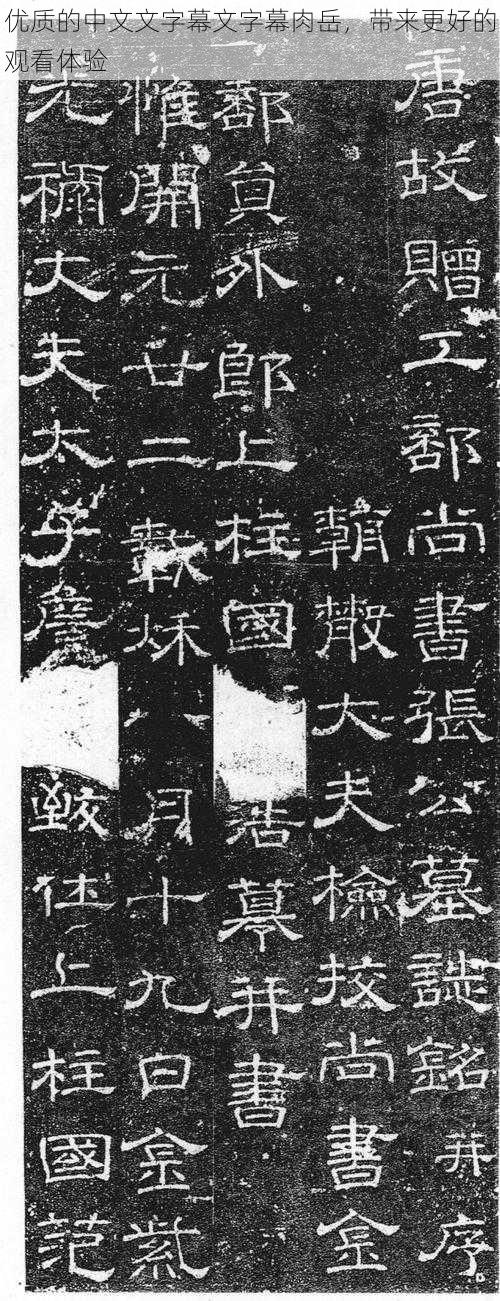 优质的中文文字幕文字幕肉岳，带来更好的
观看体验
唐故贈工部尚書張公墓誌銘并序
朝散大夫檢挍尚書金
部員外郎上柱國浩墓并書
惟開元廿二載秌八月十九日金紫
光祿大夫太子詹致仕上柱國范